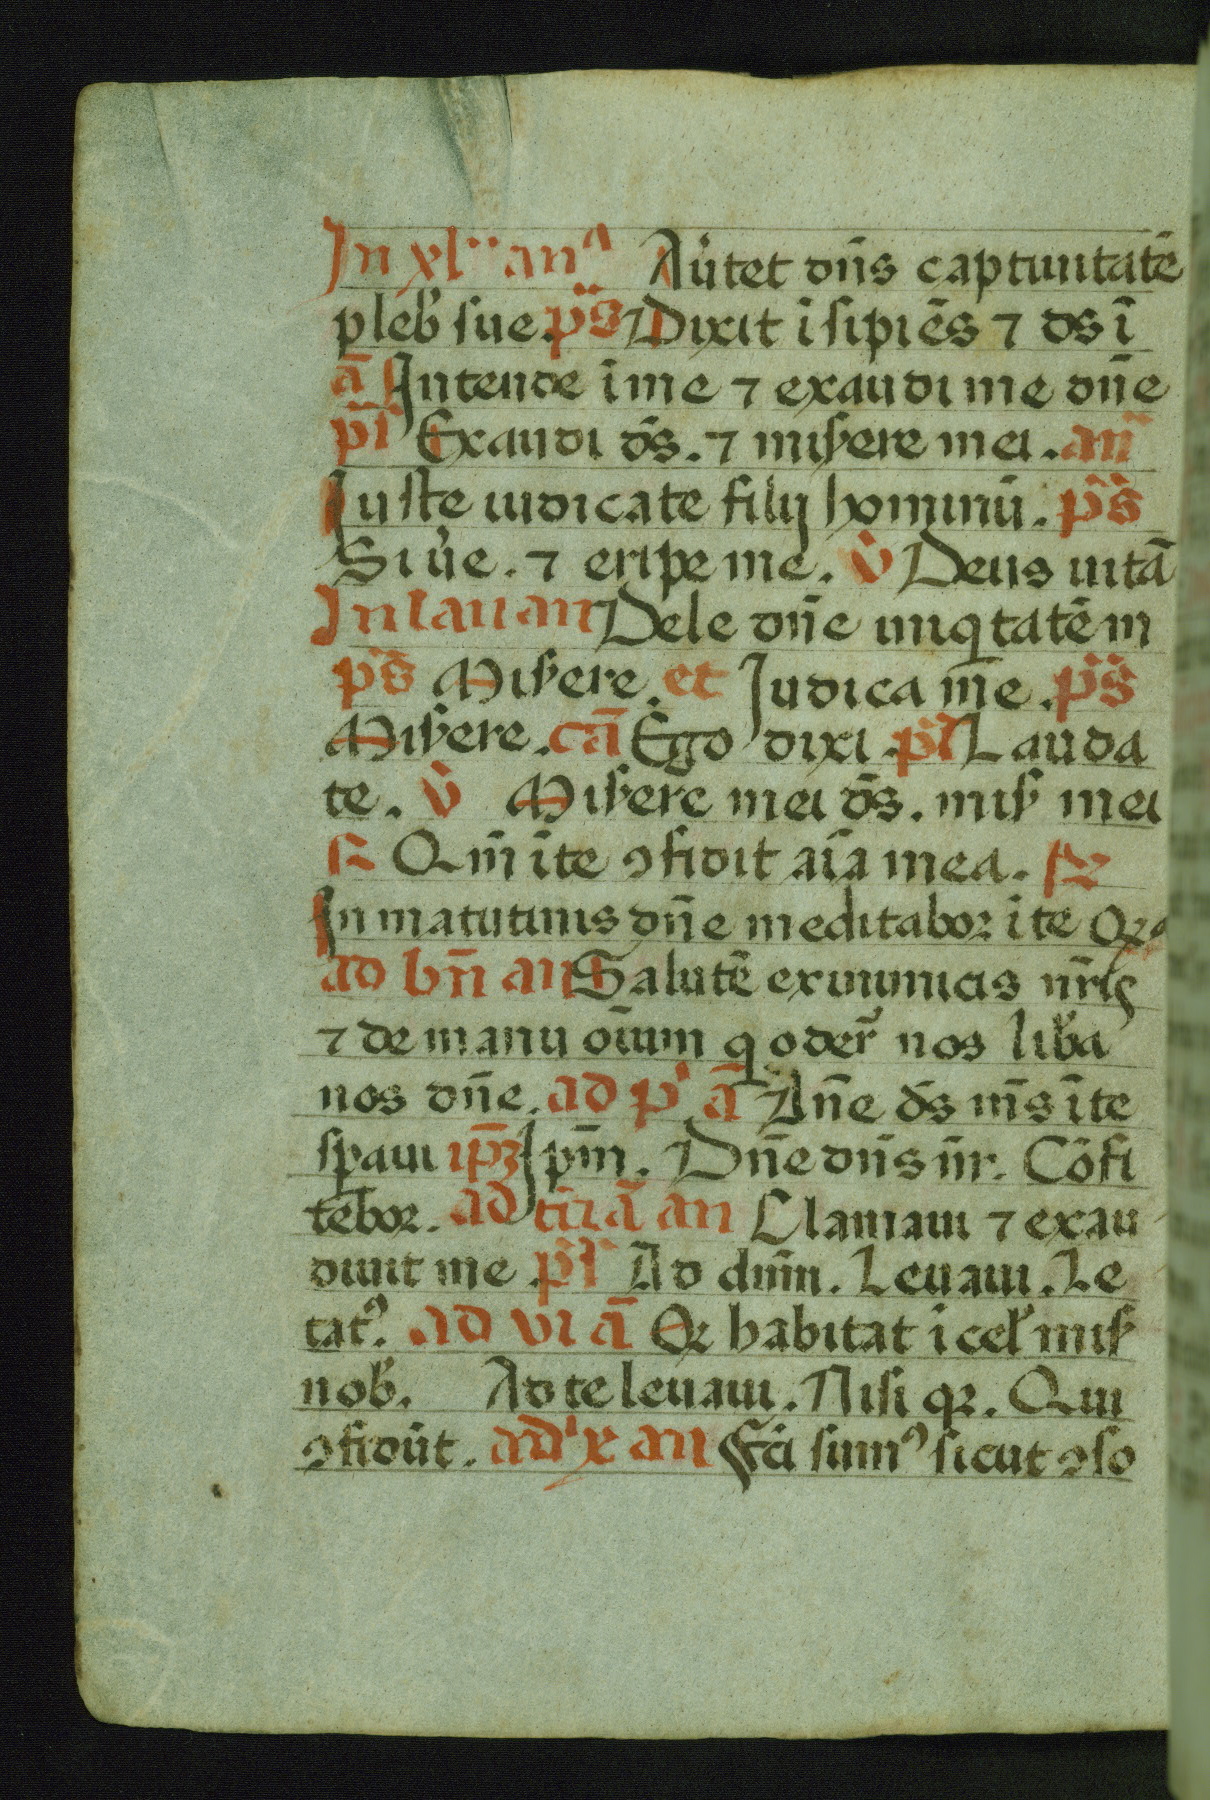 In xl^a an^a Au͛tet dn̄s captiuitatē
pleb̕ sue. p̄s Dixit īsipiēs ⁊ ds ī
ā Intende īme ⁊ exaudi me dn̄e
p̄l Exaudi d̄s. ⁊ miẜere mei. an̄
Juste iudicate filij hominū. p̄s
Si ūe. ⁊ eripe me. v̄ Deus uitā
In lau an Dele dn̄e iniq̇tatē m
p̄s Miẜere. et Iudica me. p̄s
Miẜere. cā Ego dixi. p̄l Lauda
te. v̄ Miẜere mei d̄s. miẜ mei
℟ Qm̄ īte ꝯfidit aīa mea. ℟
In matutinis dn̄e meditabor īte
ad bn̄ an Salutē ex inimicis nr̄is
⁊ de manu oīum q̇ oder̄ nos lib̕a
nos dn̄e. ad p̕ ā Dn̄e d̄s m̄s īte
spaui ip̄z Ipm̄. Dn̄e dn̄s nr̄. Cōfi
tebor. ad tciā an Clamaui ⁊ exau
diuit me. p̄l Ad dnm̄. Leuaui. Le
tatꝰ. ad vi ā Qꝛ habitat ī cel̕ miẜ
nob̕. Ad te leuaui. Nisi qꝛ. Qui
ꝯfidūt. ad ix an Fc̄i sumꝰ sicut ꝯso